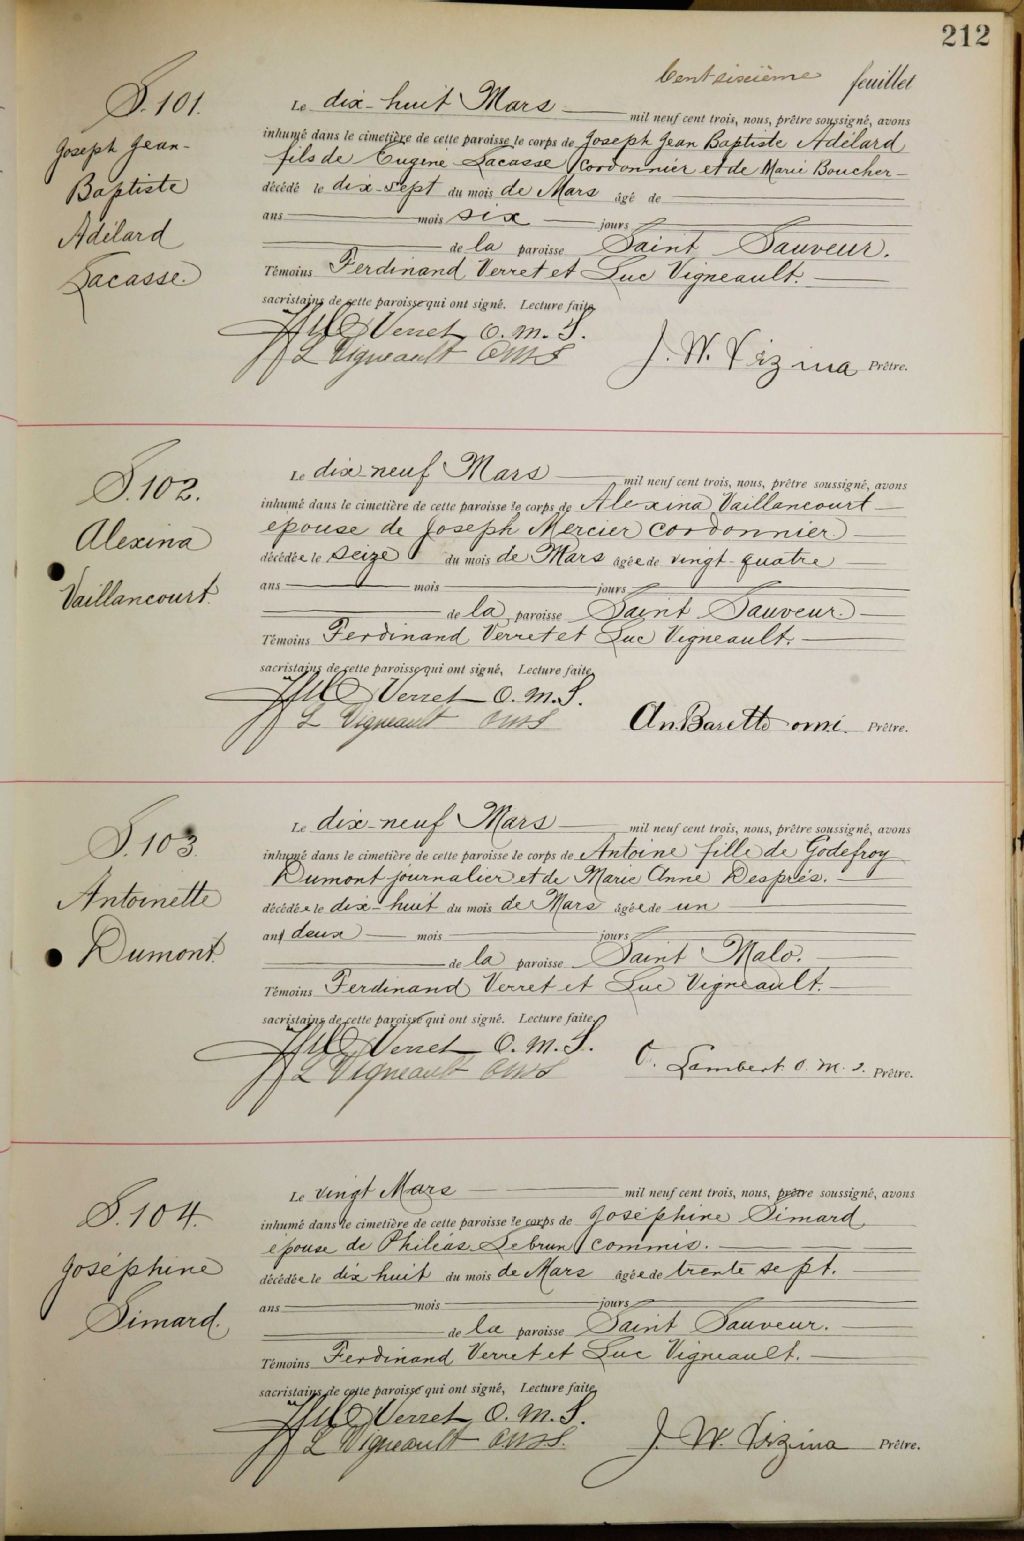 212
Cent sixième feuillet
S. 101.
Joseph Jean-
Baptiste
Adélard
Lacasse.
Le dix-huit Mars mil neuf cent trois, nous, prêtre soussigné, avons
inhumé dans le cimetière de cette paroisse le corps de Joseph Jean Baptiste Adélard
fils de Eugene Lacasse Cordonnier et de Marie Boucher
décédé le dix-sept du mois de Mars âgé de
ans mois six jours
de la paroisse Saint Sauveur.
Témoins Ferdinand Verret et Luc Vigneault.
sacristains de cette paroisse qui ont signé. Lecture faite
Verret O. M. I.
L Vigneault OMI
J. W. Vézina Prêtre.
S. 102.
Alexina
Vaillancourt.
Le dix-neuf Mars mil neuf cent trois, nous, prêtre soussigné, avons
inhumé dans le cimetière de cette paroisse le corps de Alexina Vaillancourt
epouse de Joseph Mercier cordonnier
décédée le seize du mois de Mars âgée de vingt-quatre
ans mois jours
de la paroisse Saint Sauveur.
Témoins Ferdinand Verret et Luc Vigneault.
sacristains de cette paroisse qui ont signé, Lecture faite
Verret O. M. I.
L Vigneault OMI
An. Barette omi. Prêtre.
S. 103.
Antoinette
Dumont.
Le dix-neuf Mars mil neuf cent trois, nous, prêtre soussigné, avons
inhumé dans le cimetière de cette paroisse le corps de Antoine fille de Godefroy
Dumont journalier et de Marie Anne Després.
décédée le dix-huit du mois de Mars âgée de un
an deux mois jours
de la paroisse Saint Malo.
Témoins Ferdinand Verret et Luc Vigneault.
sacristains de cette paroisse qui ont signé. Lecture faite
Verret O. M. I.
L Vigneault OMI
C. Lambert o. m. i. Prêtre.
S. 104.
Joséphine
Simard.
Le vingt Mars mil neuf cent trois, nous, prêtre soussigné, avons
inhumé dans le cimetière de cette paroisse le corps de Joséphine Simard
épouse de Philéas Lebrun commis.
décédée le dix huit du mois de Mars âgée de trente sept.
ans mois jours
de la paroisse Saint Sauveur.
Témoins Ferdinand Verret et Luc Vigneault.
sacristains de cette paroisse qui ont signé, Lecture faite
Verret O. M. I.
L Vigneault OMI.
J. W. Vézina Prêtre.